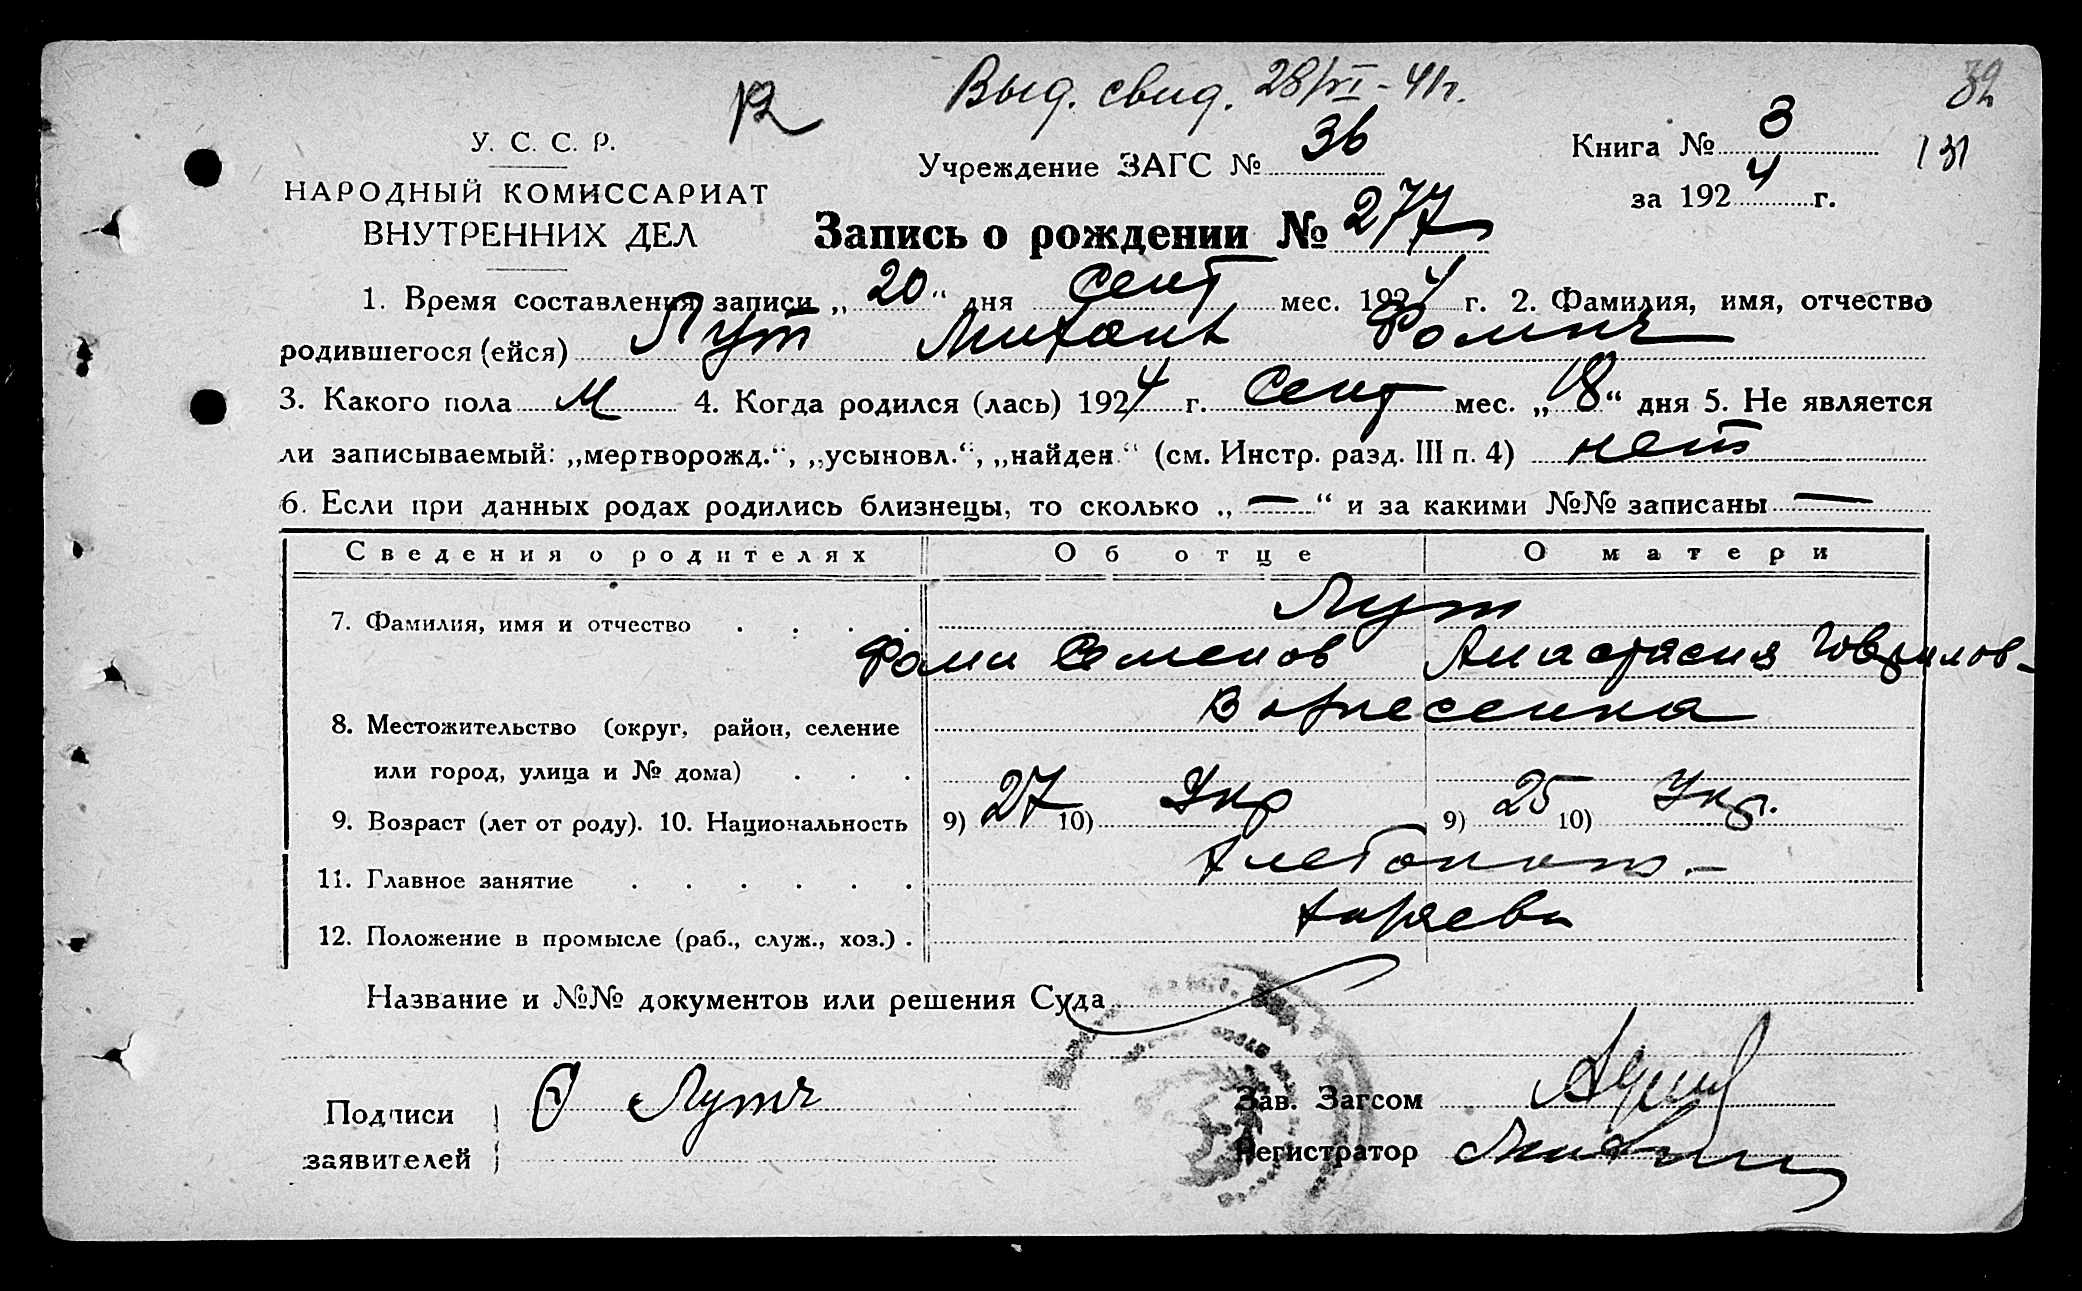 Выд. свид. 28/VI-41г.
32
У. С. С. Р.
Учреждение ЗАГС № 36
Книга № 3
131
НАРОДНЫЙ КОМИССАРИАТ
за 1924 г.
ВНУТРЕННИХ ДЕЛ
Запись о рождении № 277
1. Время составления записи „20“ дня Сент мес. 1924 г. 2. Фамилия, имя, отчество
родившегося (ейся) Лут Михаил Фомич
3. Какого пола М 4. Когда родился (лась) 1924 г. Сент мес. „18“ дня 5. Не является
ли записываемый: „мертворожд.“, „усыновл.“, „найден.“ (см. Инстр. разд. III п. 4) нет
6. Если при данных родах родились близнецы, то сколько „—“ и за какими №№ записаны —
Сведения о родителях Об отце О матери
Лут
7. Фамилия, имя и отчество
Фами Семенов Анастасия Гаврилов-
Вознесенка
8. Местожительство (округ, район, селение
или город, улица и № дома)
9. Возраст (лет от роду). 10. Национальность 9) 27 10) Укр 9) 25 10) Укр.
Хлебопаш.-
11. Главное занятие
хозяева
12. Положение в промысле (раб., служ., хоз.)
Название и №№ документов или решения Суда
Подписи Ф Лут
Зав. Загсом
заявителей
Регистратор